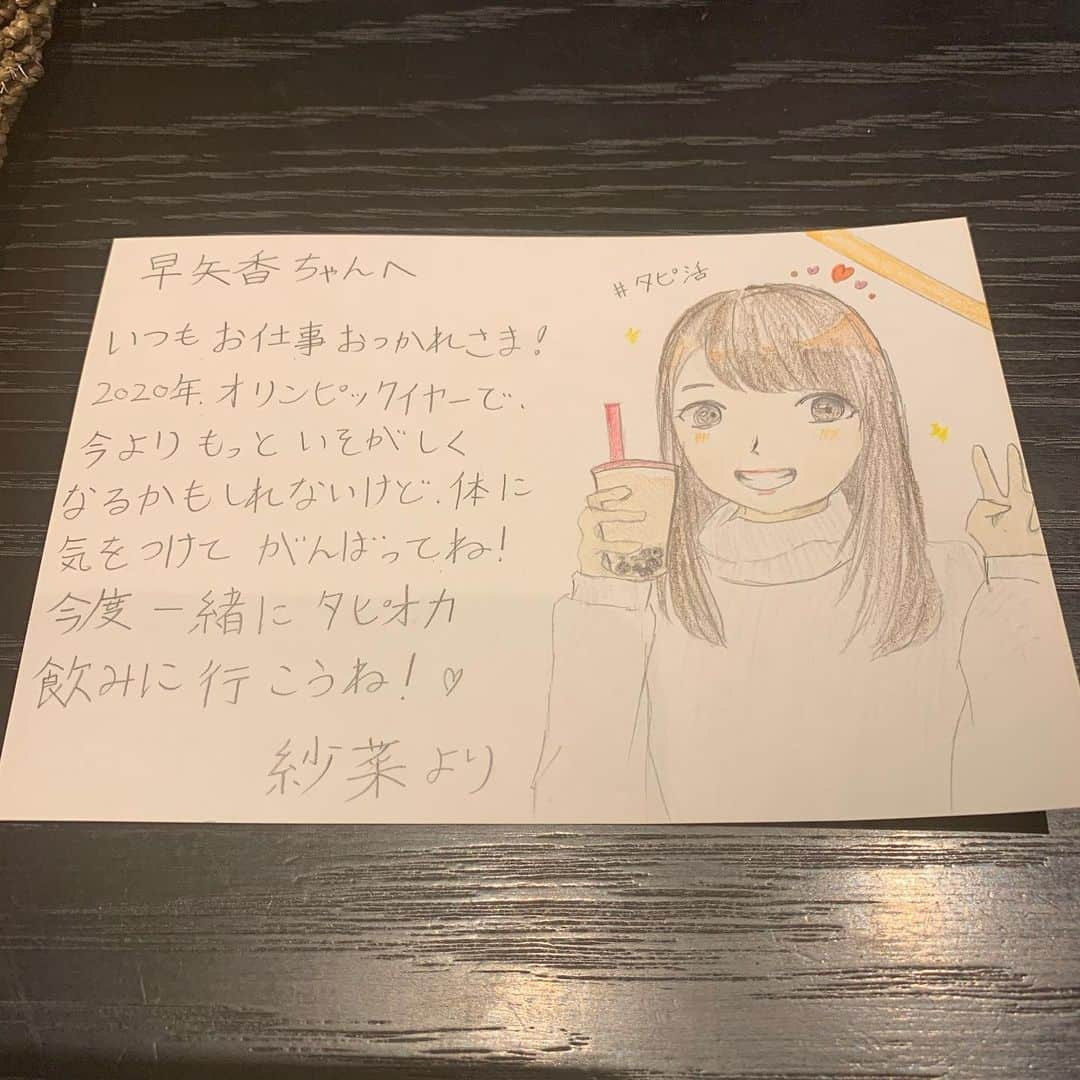 早矢香ちゃんへ
いつもお仕事おっかれさま!
2020年.オリンピックイヤーで、
今よりもっといそがしく
なるかもしれないけど、体に
気をつけてがんばってね!
今度一緒にタピオカ
飲みに行こうね!♡
紗菜より
#タピ活